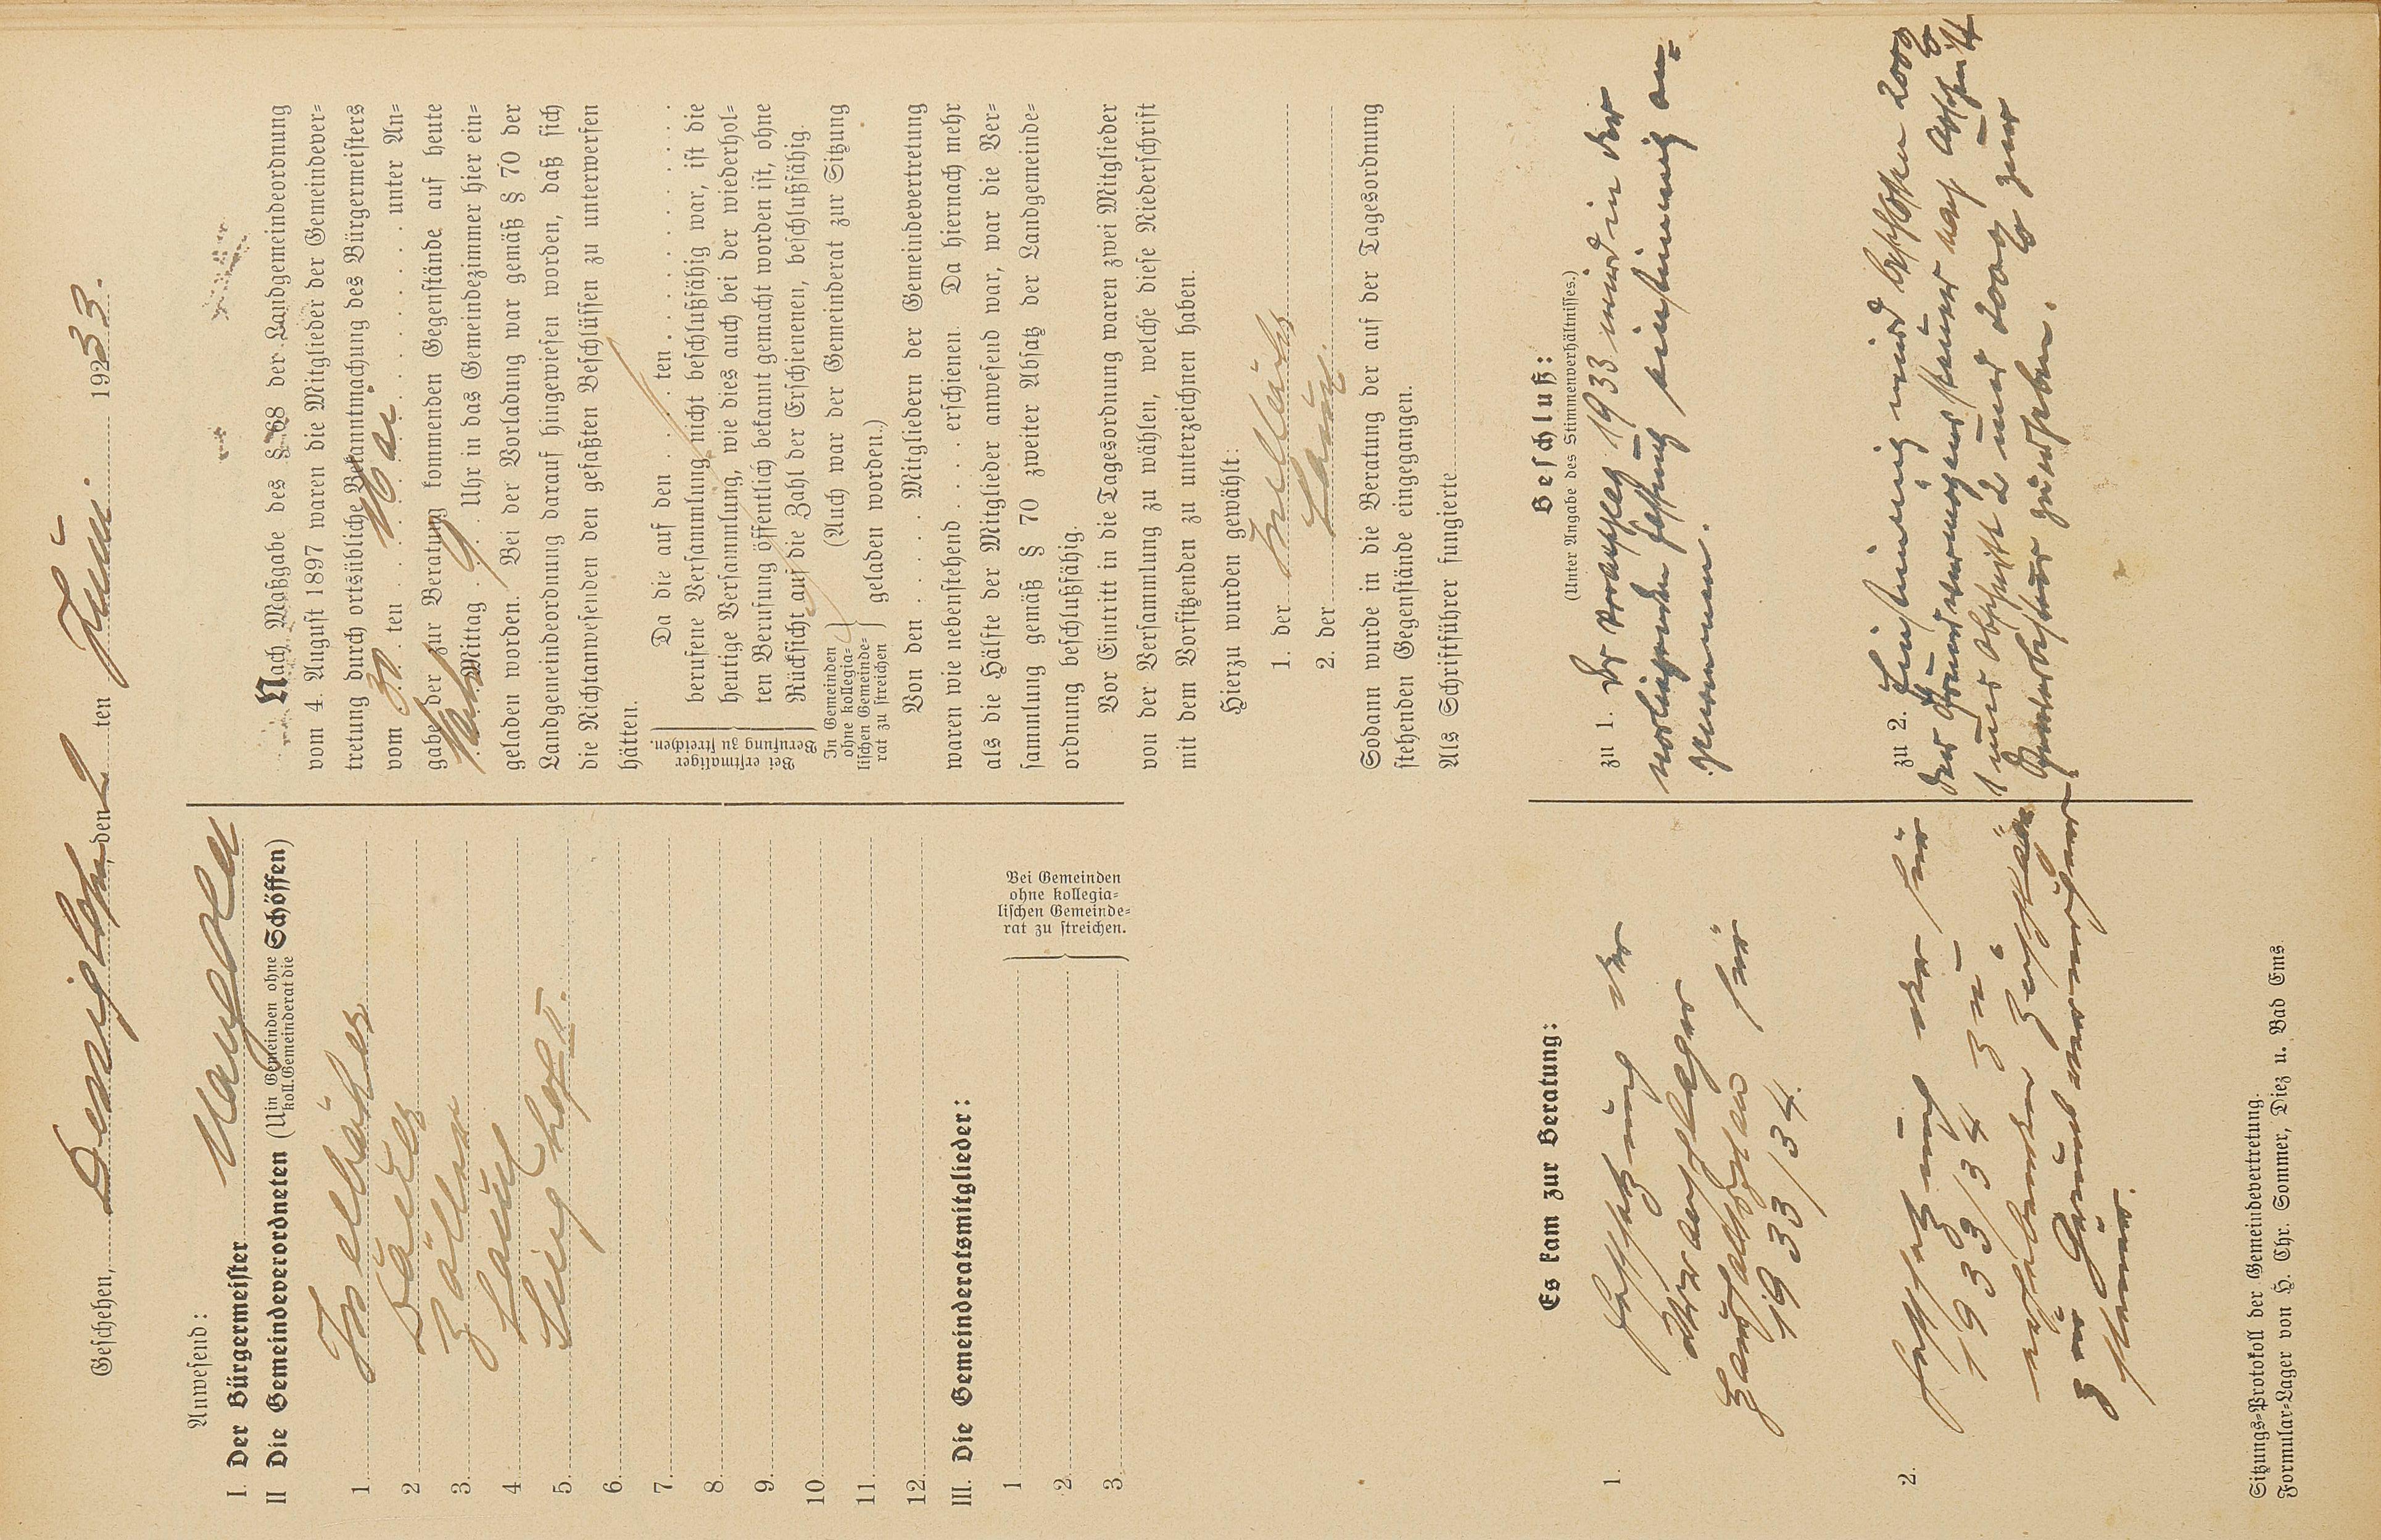 Geschehen, Dessighofen, den 2 ten Juni 1933.
Anwesend:
I. Der Bürgermeister
II Die Gemeindeverordneten (U in Gemeinden ohne koll. Gemeinderat die Schöffen)
1.
2
3. Zöller
4
5. Linghof II.
6.
7.
8.
9.
10.
11.
12.
III. Die Gemeinderatsmitglieder:
1
2
3.
Bei Gemeinden
ohne kollegia-
lischen Gemeinde-
rat zu streichen.
Nach Maßgabe des § 68 der Landgemeindeordnung
vom 4. August 1897 waren die Mitglieder der Gemeindever-
tretung durch ortsübliche Bekanntmachung des Bürgermeisters
vom 30 ten Mai unter An-
gabe der zur Beratung kommenden Gegenstände auf heute
Nach Mittag 9 Uhr in das Gemeindezimmer hier ein-
geladen worden. Bei der Vorladung war gemäß § 70 der
Landgemeindeordnung darauf hingewiesen worden, daß sich
die Nichtanwesenden den gefaßten Beschlüssen zu unterwerfen
hätten.
Bei erstmaliger
Berufung zu streichen.
Da die auf den . . . . ten . . . . . . . . . .
berufene Versammlung nicht beschlußfähig war, ist die
heutige Versammlung, wie dies auch bei der wiederhol-
ten Berufung öffentlich bekannt gemacht worden ist, ohne
Rücksicht auf die Zahl der Erschienenen, beschlußfähig.
In Gemeinden
ohne kollegia-
lischen Gemeinde-
rat zu streichen
(Auch war der Gemeinderat zur Sitzung
geladen worden.)
Von den . . . . . Mitgliedern der Gemeindevertretung
waren wie nebenstehend . . . . erschienen. Da hiernach mehr
als die Hälfte der Mitglieder anwesend war, war die Ver-
sammlung gemäß § 70 zweiter Absatz der Landgemeinde-
ordnung beschlußfähig.
Vor Eintritt in die Tagesordnung waren zwei Mitglieder
von der Versammlung zu wählen, welche diese Niederschrift
mit dem Vorsitzenden zu unterzeichnen haben.
Hierzu wurden gewählt:
1. der
2. der
Sodann wurde in die Beratung der auf der Tagesordnung
stehenden Gegenstände eingegangen.
Als Schriftführer fungierte
Es kam zur Beratung:
1. Festsetzung der
Voranschläge
Haushaltsplan für
1933/34.
2. Festsetzung der für
1933/34 zu
erhebenden Zuschläge
zur Grundvermögens
steuer.
Beschluß:
(Unter Angabe des Stimmenverhältnisses.)
zu 1. Der Voranschlag 1933 wird in der
vorliegenden Fassung einstimmig an-
genommen.
zu 2. Einstimmig wird beschlossen 200%
der Grundvermögenssteuer nach Abschnitt
1 und Abschnitt 2 und 200% zur
Gewerbesteuer zu erheben.
Sitzungs-Protokoll der Gemeindevertretung.
Formular-Lager von H. Chr. Sommer, Diez u. Bad Ems